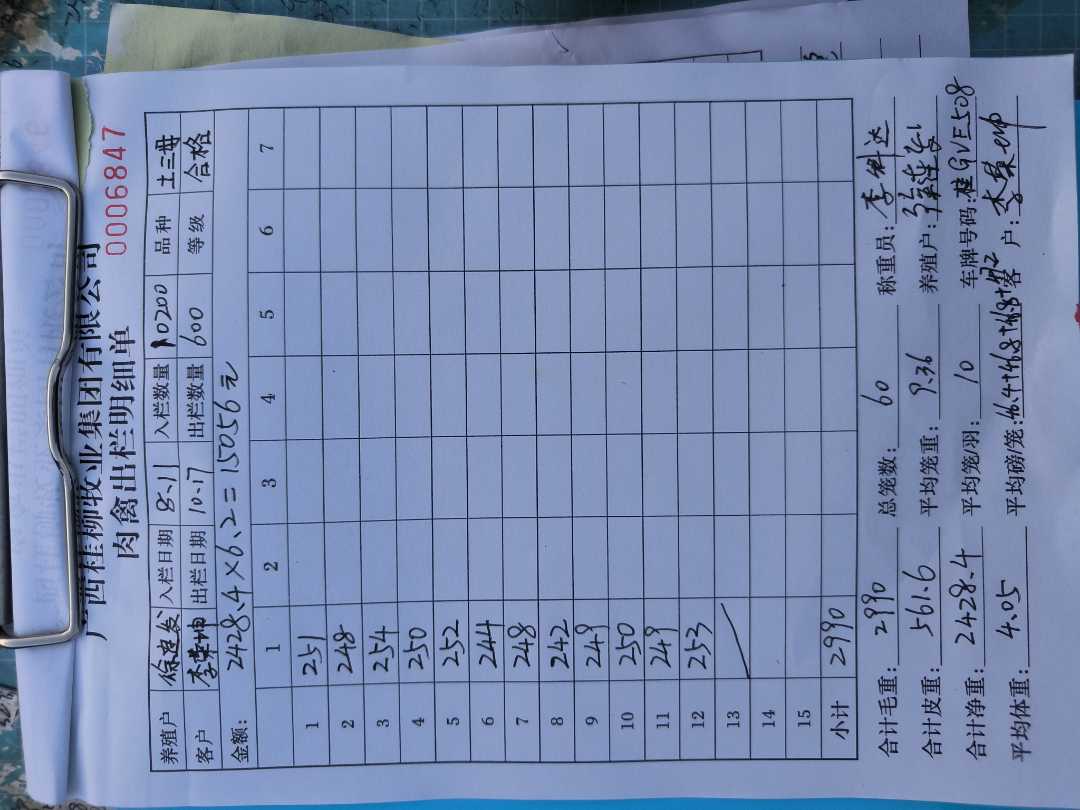 广西桂柳牧业集团有限公司
肉禽出栏明细单 0006847
养殖户 徐连发 入栏日期 8.11 入栏数量 10200 品种 土三母
客户 李荣坤 出栏日期 10.17 出栏数量 600 等级 合格
金额: 2428.4×6.2=15056元
1 2 3 4 5 6 7
1 251
2 248
3 254
4 250
5 252
6 244
7 248
8 242
9 249
10 250
11 249
12 253
13
14
15
小计 2990
合计毛重: 2990 总笼数: 60 称重员: 李科达
合计皮重: 561.6 平均笼重: 9.36 养殖户: 徐连发
合计净重: 2428.4 平均笼/羽: 10 车牌号码: 桂GVE508
平均体重: 4.05 平均磅/笼: 46.4+46.8+46.8+47.2 客户: 李荣坤